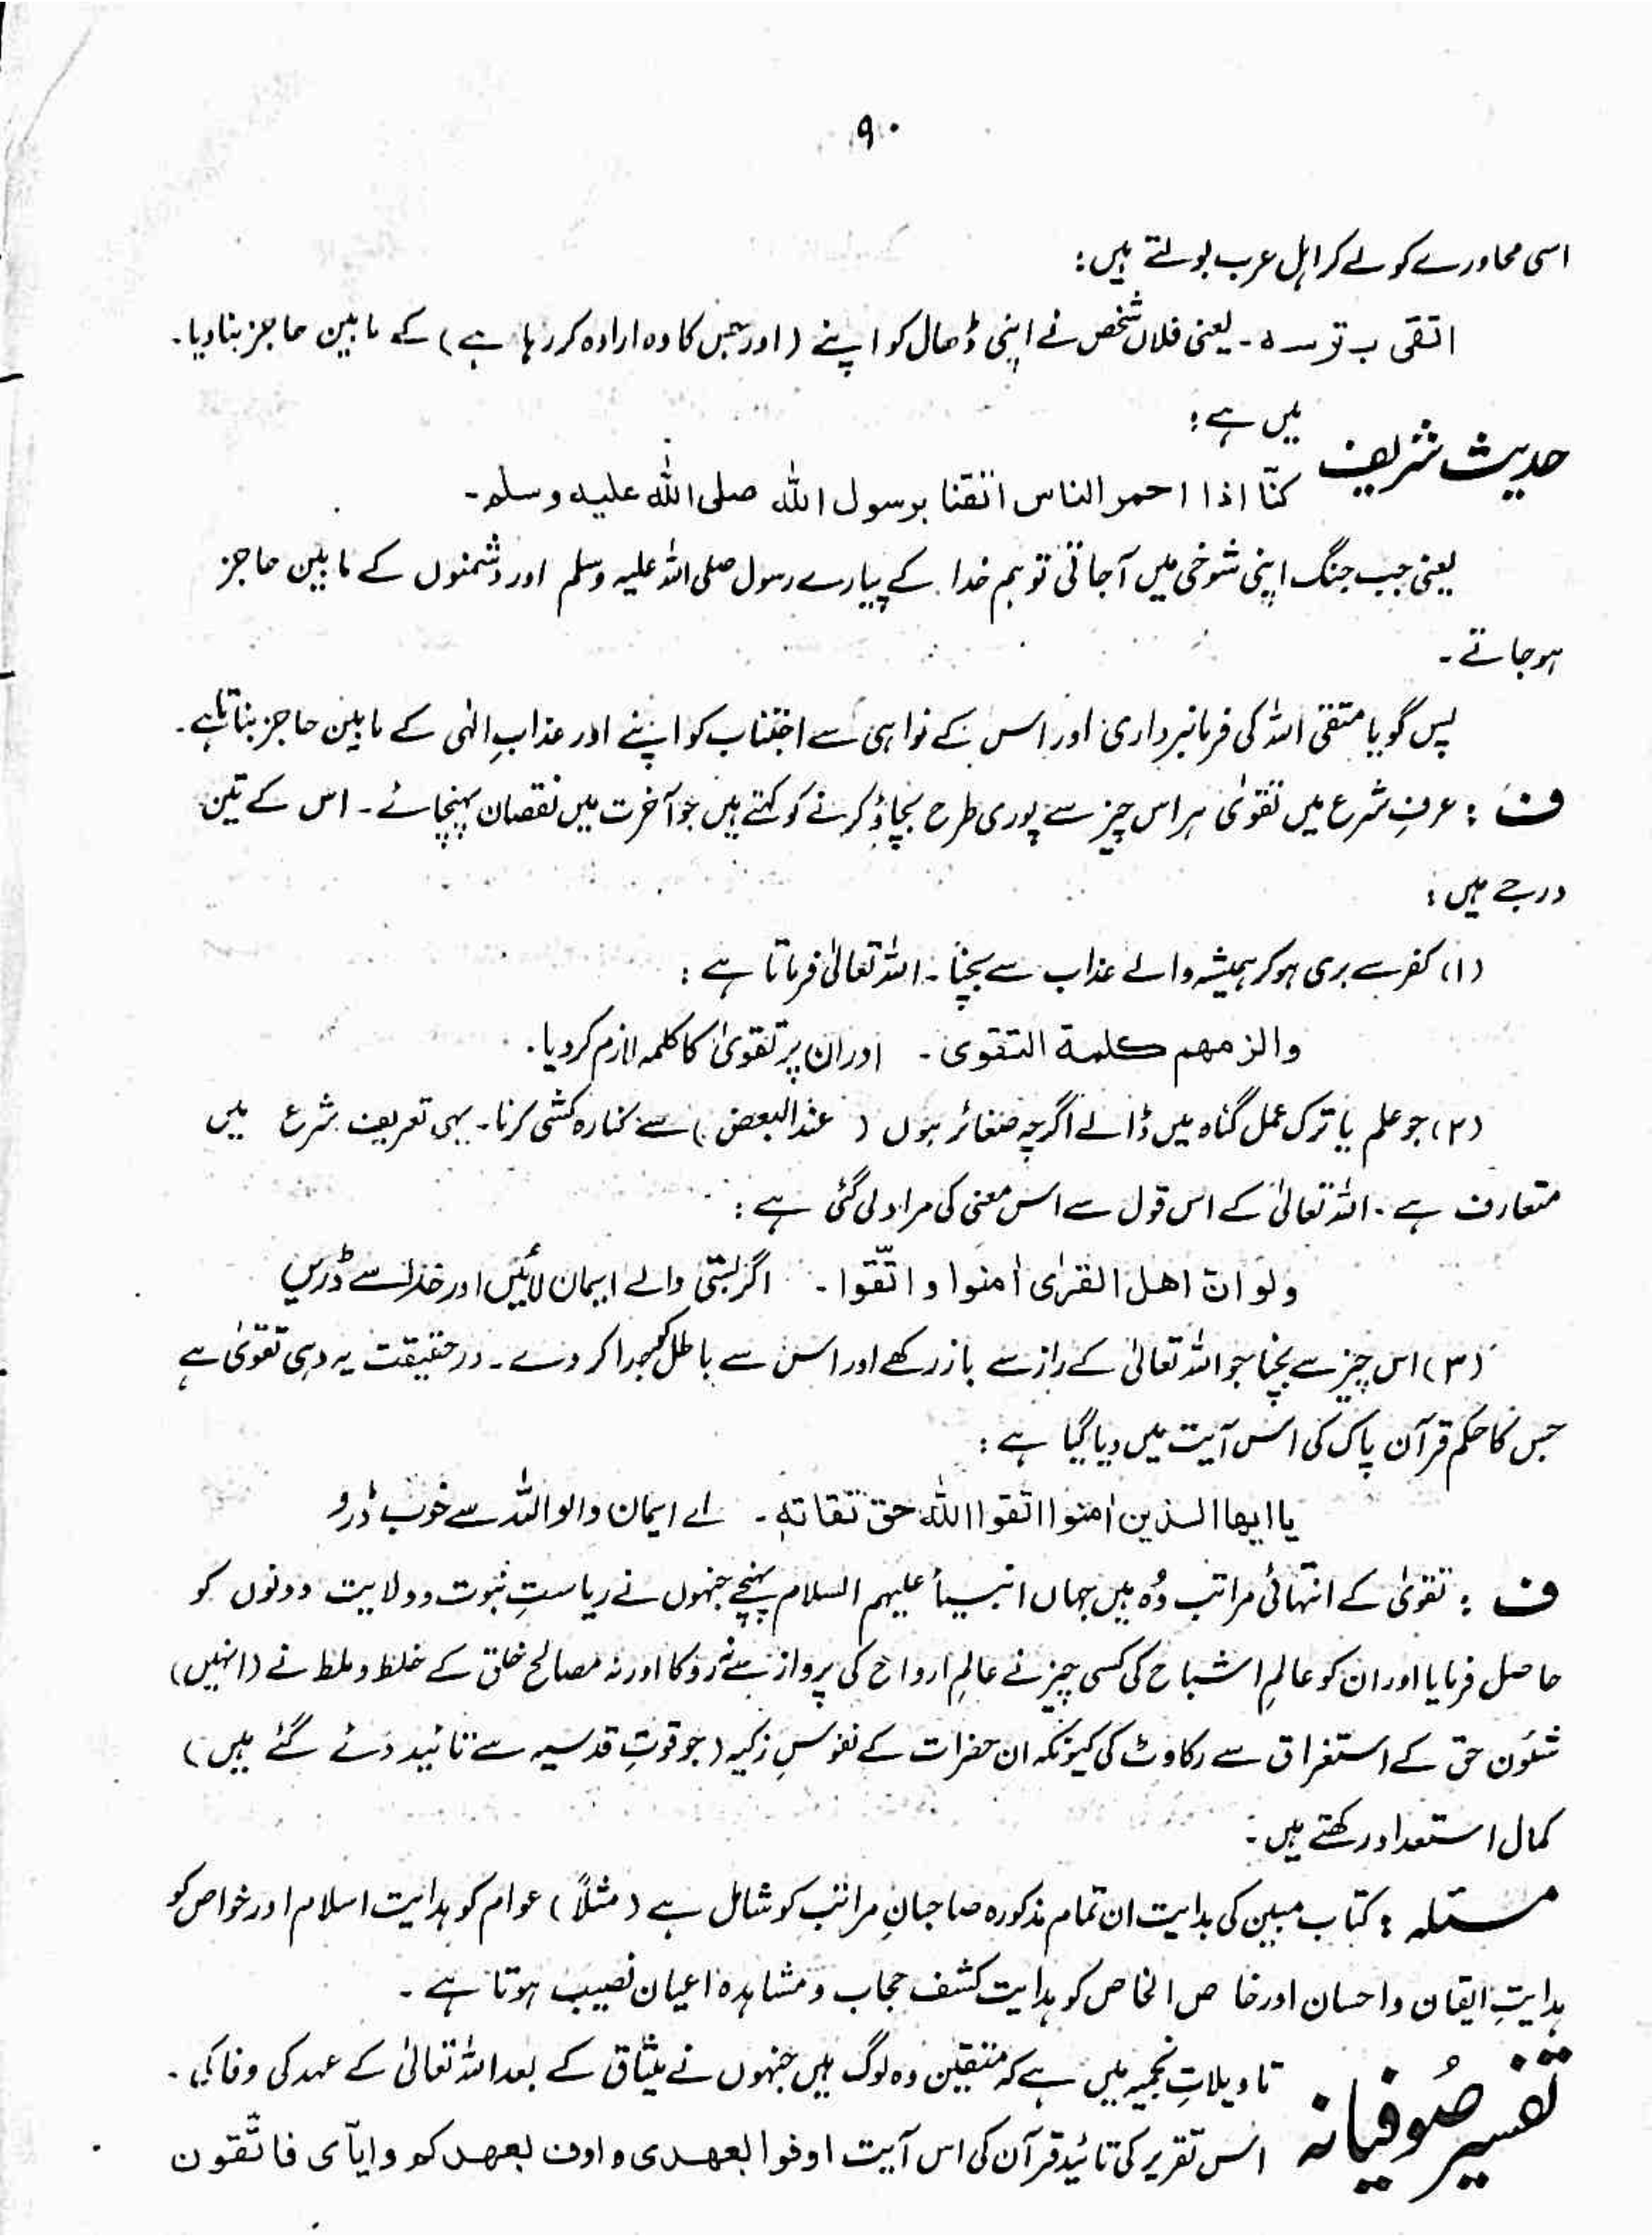 ۹۰
اسی محاورے کو لے کر اہل عرب بولتے ہیں :
اتقی ب ترسہ ۔ یعنی فلاں شخص نے اپنی ڈھال کو اپنے ( اور جس کا وہ ارادہ کر رہا ہے ) کے مابین حاجز بنا دیا ۔
حدیث شریف میں ہے :
کنّا اذا احمر الناس اتقنا برسول اللہ صلی اللہ علیہ وسلم ۔
یعنی جب جنگ اپنی شوخی میں آجاتی تو ہم خدا کے پیارے رسول صلی اللہ علیہ وسلم اور دشمنوں کے مابین حاجز
ہوجاتے ۔
پس گویا متقی اللہ کی فرمانبرداری اور اس کے نواہی سے اجتناب کو اپنے اور عذابِ الٰہی کے مابین حاجز بناتا ہے ۔
ف : عرفِ شرع میں تقویٰ ہر اس چیز سے پوری طرح بچاؤ کرنے کو کہتے ہیں جو آخرت میں نقصان پہنچائے ۔ اس کے تین
درجے ہیں :
(۱) کفر سے بری ہو کر ہمیشہ والے عذاب سے بچنا ۔ اللہ تعالیٰ فرماتا ہے :
والزمھم کلمة التقوی ۔ اور ان پر تقویٰ کا کلمہ لازم کر دیا ۔
(۲) جو علم یا ترک عمل گناہ میں ڈالے اگرچہ صغائر ہوں ( عند البعض ) سے کنارہ کشی کرنا ۔ یہی تعریف شرع میں
متعارف ہے ۔ اللہ تعالیٰ کے اس قول سے اس معنی کی مراد لی گئی ہے :
ولو انّ اھل القرٰی اٰمنوا و اتّقوا ۔ اگر بستی والے ایمان لائیں اور خدا سے ڈریں
(۳) اس چیز سے بچنا جو اللہ تعالیٰ کے راز سے باز رکھے اور اس سے باطل کو جدا کر دے ۔ درحقیقت یہ وہی تقویٰ ہے
جس کا حکم قرآن پاک کی اس آیت میں دیا گیا ہے :
یا ایھا الذین اٰمنوا اتقوا اللہ حق تقاتہٖ ۔ اے ایمان والو اللہ سے خوب ڈرو
ف : تقویٰ کے انتہائی مراتب وُہ ہیں جہاں انبیأ علیہم السلام پہنچے جنہوں نے ریاستِ نبوت و ولایت دونوں کو
حاصل فرمایا اور ان کو عالمِ اشباح کی کسی چیز نے عالمِ ارواح کی پرواز سے نہ روکا اور نہ مصالح خلق کے خلط و ملط نے ( انہیں )
شئون حق کے استغراق سے رکاوٹ کی کیونکہ ان حضرات کے نفوسِ زکیہ ( جو قوتِ قدسیہ سے تائید دئے گئے ہیں )
کمال استعداد رکھتے ہیں ۔
مسئلہ : کتاب مبین کی ہدایت ان تمام مذکورہ صاحبانِ مراتب کو شامل ہے ( مثلاً ) عوام کو ہدایت اسلام اور خواص کو
ہدایتِ ایقان و احسان اور خاص الخاص کو ہدایت کشف حجاب و مشاہدہ اعیان نصیب ہوتا ہے ۔
تفسیر صُوفیانہ تاویلاتِ نجمیہ میں ہے کہ متقین وہ لوگ ہیں جنہوں نے میثاق کے بعد اللہ تعالیٰ کے عہد کی وفا کی ۔
اس تقریر کی تائید قرآن کی اس آیت اوفوا بعھدی و اوف بعھدکم وایّای فاتّقون